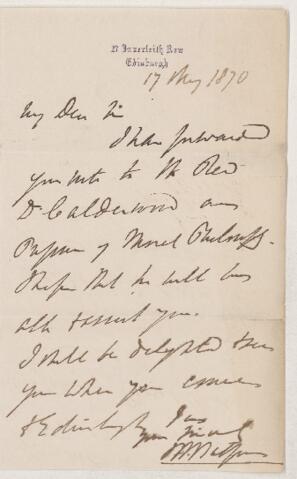 27 Inverleith Row
Edinburgh
17 May 1870
My Dear Sir
I have forwarded
your note to the Revd
Dr Calderwood our
Professor of Moral Philosophy.
I hope that he will be
able to assist you.
I shall be delighted to see
you when you come
to Edinburgh